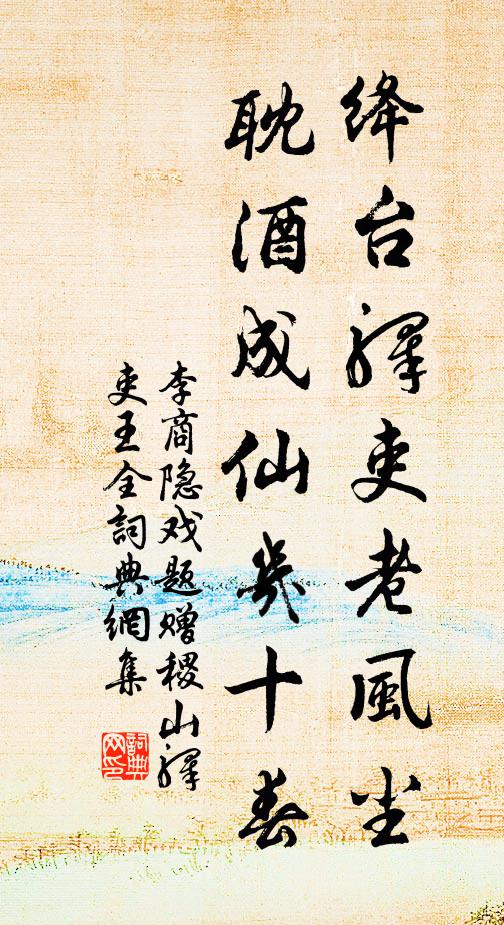 绛台驛吏老風尘
耽酒成仙幾十春
李商隐戏题赠稷山驛
吏王全詞典網集
詞典
网印